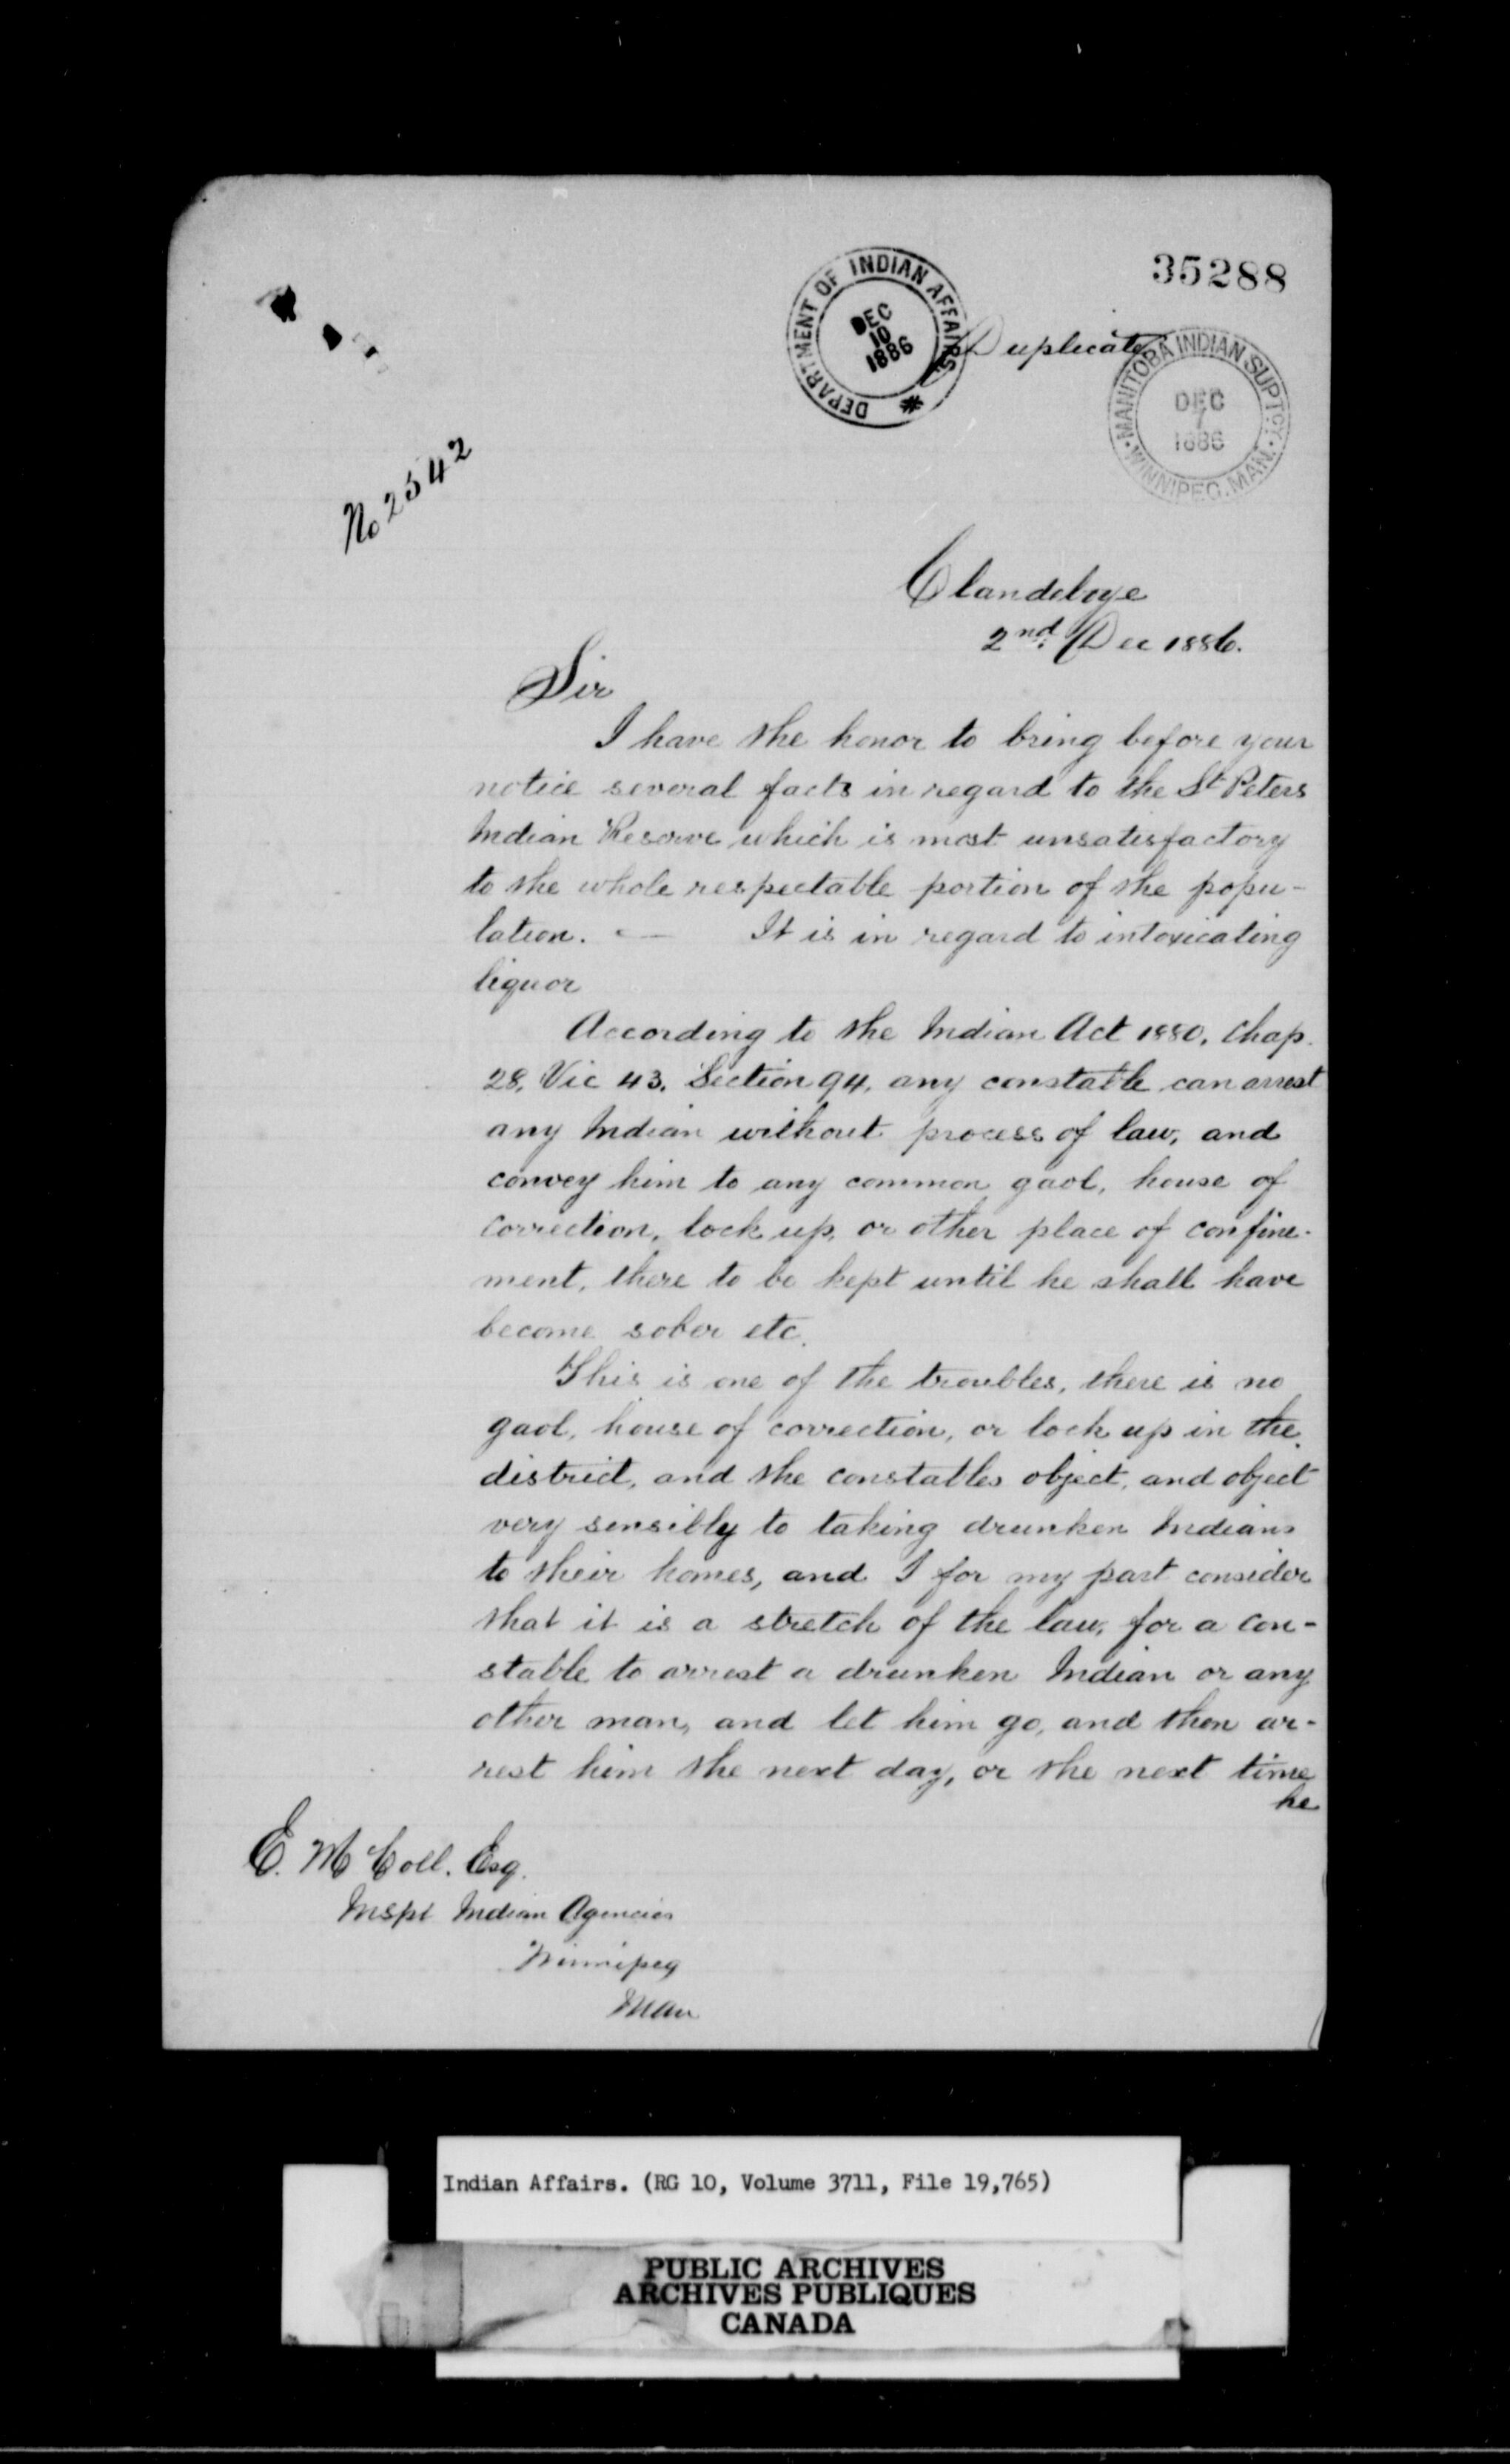 35288
DEPARTMENT OF INDIAN AFFAIRS
DEC
10
1886
Duplicate
MANITOBA INDIAN SUPTCY.
DEC
7
1886
WINNIPEG. MAN.
No 2542
Clandeboye
2nd. Dec 1886.
Sir
I have the honor to bring before your
notice several facts in regard to the St Peters
Indian Reserve which is most unsatisfactory
to the whole respectable portion of the popu-
lation. — It is in regard to intoxicating
liquor
According to the Indian Act 1880. Chap.
28. Vic 43. Section 94. any constable can arrest
any Indian without process of law, and
convey him to any common gaol, house of
correction, lock up, or other place of confine-
ment, there to be kept until he shall have
become sober etc.
This is one of the troubles, there is no
gaol, house of correction, or lock up in the
district, and the constables object, and object
very sensibly to taking drunken Indians
to their homes, and I for my part consider
that it is a stretch of the law, for a con-
stable to arrest a drunken Indian or any
other man, and let him go, and then ar-
rest him the next day, or the next time
he
E. McColl. Esq.
Inspt Indian Agencies
Winnipeg
Man
Indian Affairs. (RG 10, Volume 3711, File 19,765)
PUBLIC ARCHIVES
ARCHIVES PUBLIQUES
CANADA